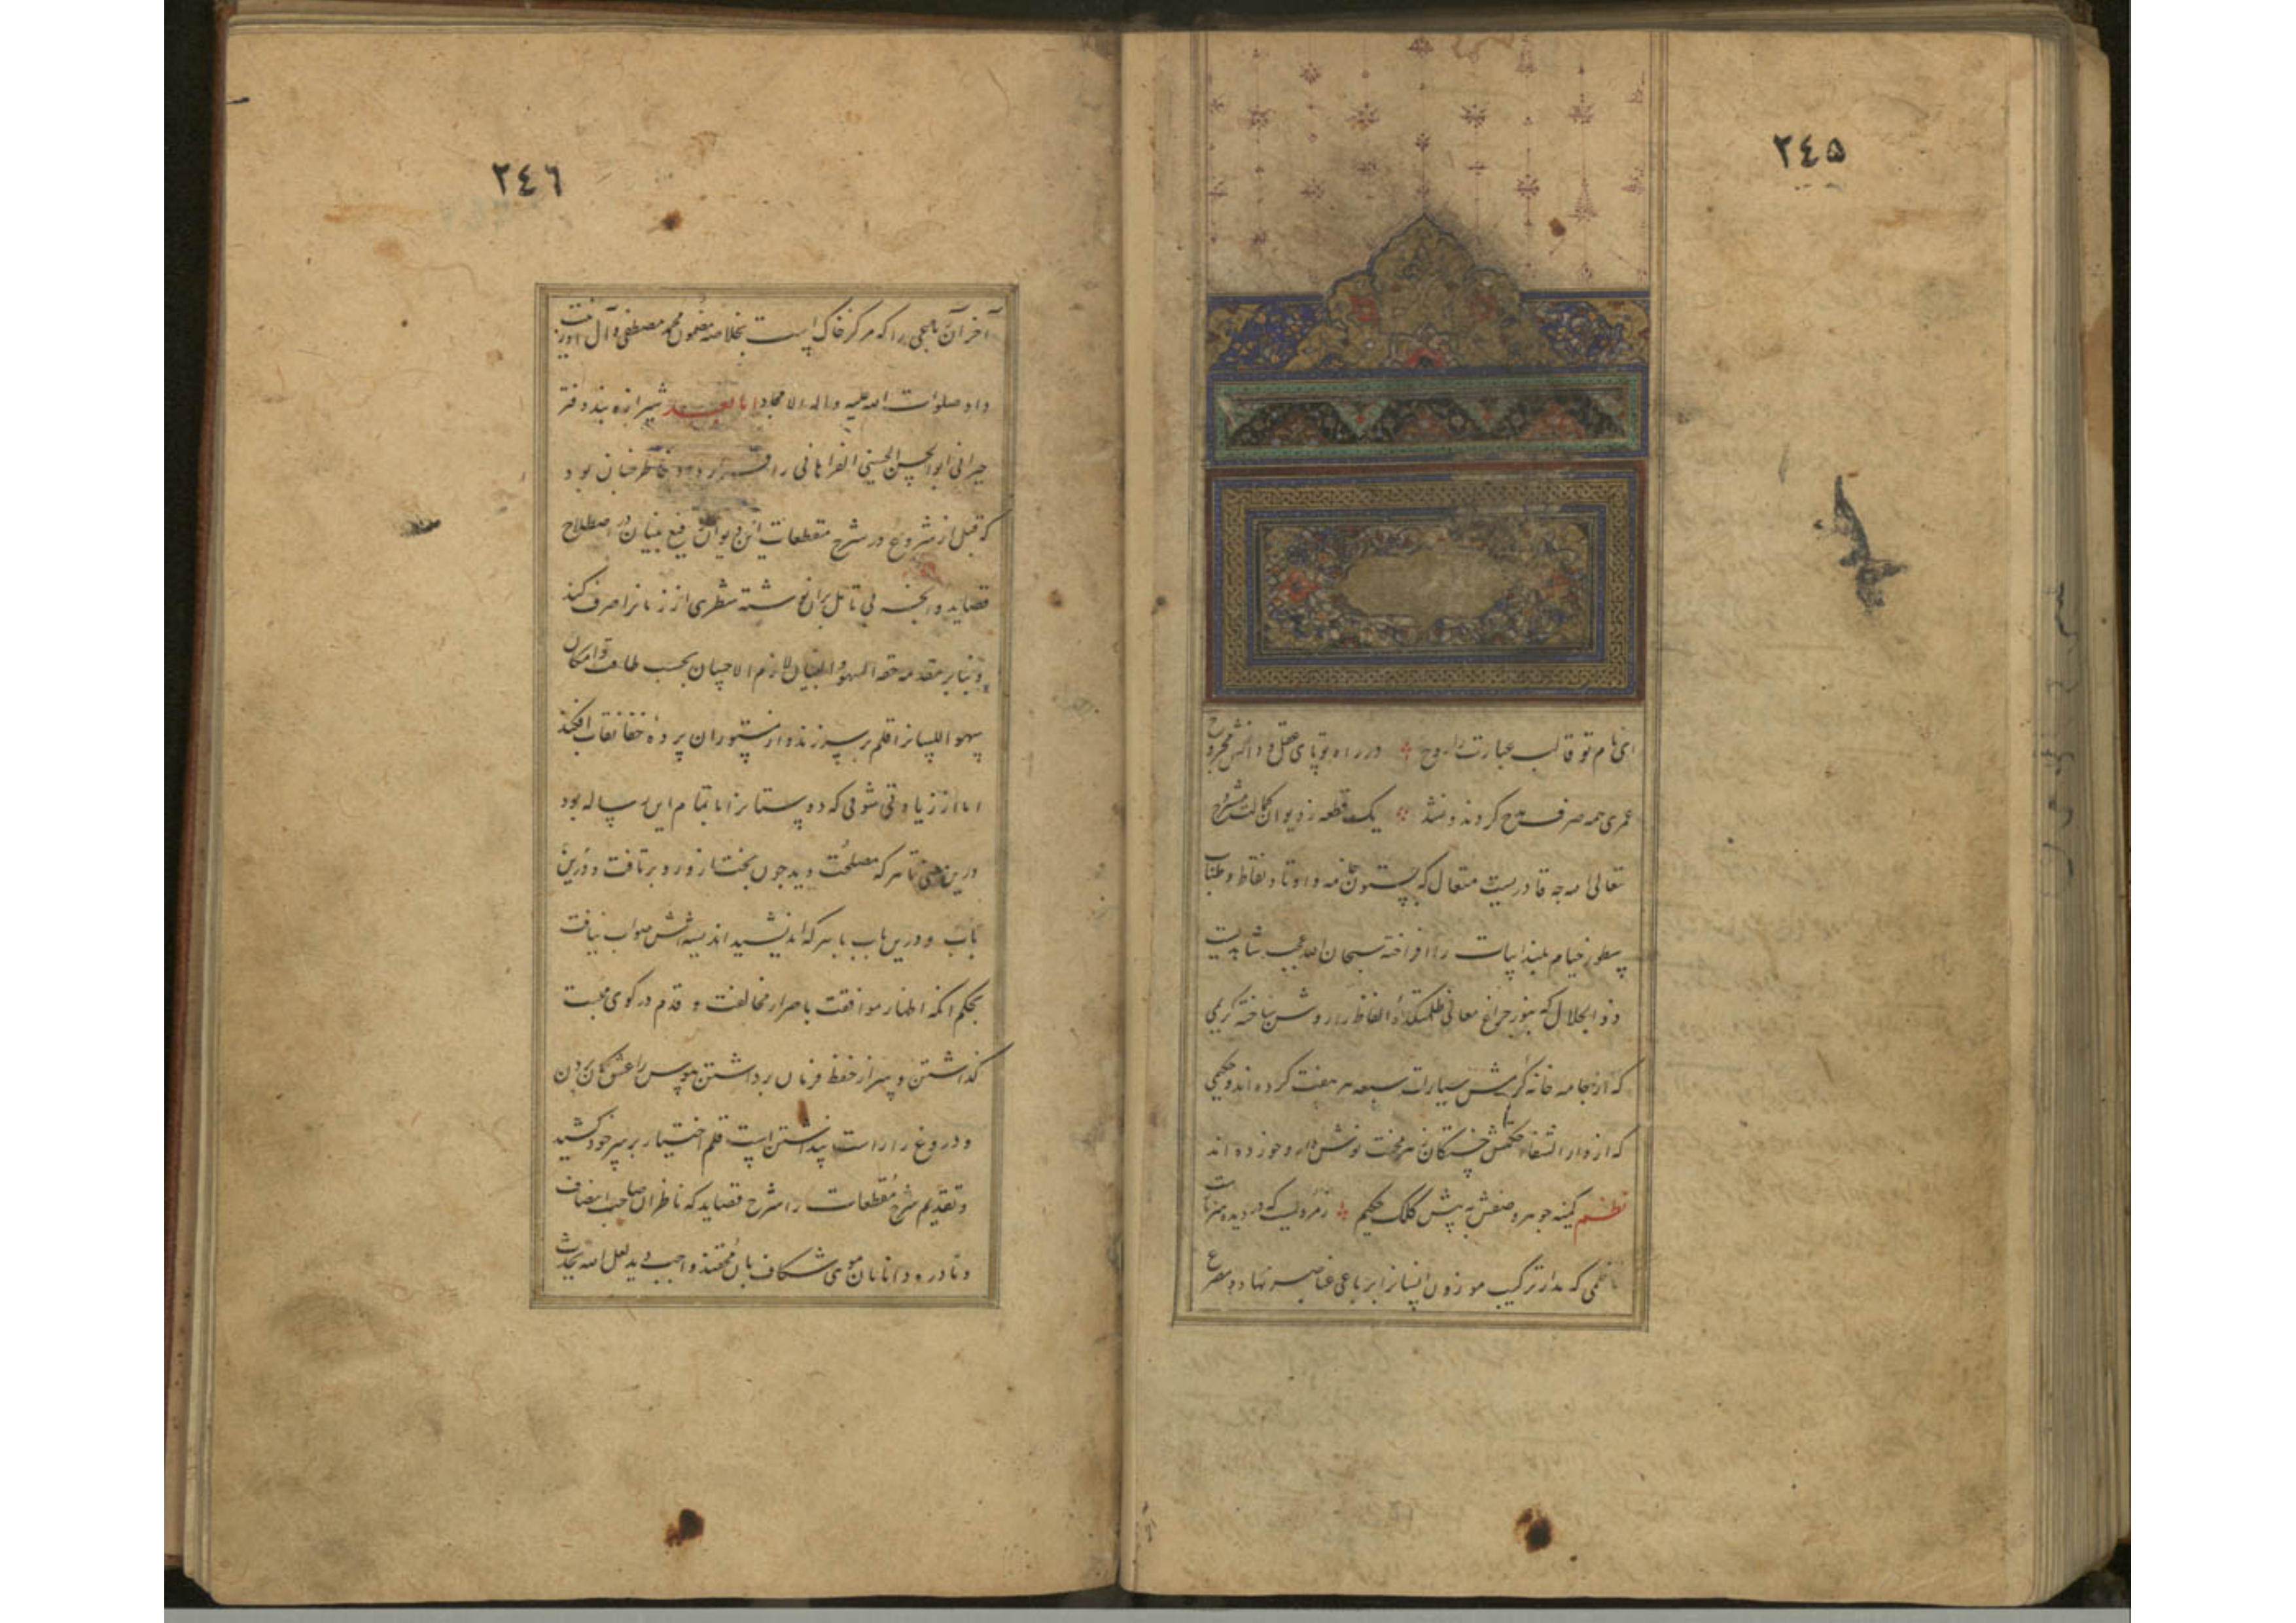 ٢٤٥
ای نام تو قالب عبارت را روح در راه تو پای عقل و دانش مجروح
عمری همه صرف شرح کردند و نشد یک قطعه ز دیوان کمالت مشروح
تعالی الله چه قادریست متعال که بستون خامه و اوتاد نقاط و طناب
سطور خیام بلند ابیات را افراخته سبحان الله عجب
ذو الجلال که بنور چراغ معانی ظلمتکدهٔ الفاظ را روشن ساخته کریمی
که از جامه خانه کرمش سیارات سبعه هر هفت کرده اند و حکیمی
که از دار الشفاء حکمتش خستگان نوش دارو خورده اند
نظم کمینه جوهر وصفش به پیش کلک حکیم که در دیده
ناظمی که مدار ترکیب موزون انسانرا برباعی عناصر نهاد و مصرع
٢٤٦
آخر آن رباعی را که مرکز خاک است بخلاصه مضمون محمد مصطفی و آل او زینت
داد صلوات الله علیه و اله الامجاد اما بعد شیرازه بند دفتر
حیرانی ابو الحسن الحسینی الفراهانی را خاطر چنان بود
که قبل از شروع در شرح مقطعات این دیوان رفیع بنیان در اصطلاح
قصاید و انچه بی تامل بران نوشته شطری از زمانرا صرف کند
و بنابر مقدمه حقه السهو و النسیان لازم الانسان بحسب طاقت و امکان
سهو اللسانرا قلم بر سر زند و از مستوران پردهٔ خفا نقاب افکند
اما از زیادتی شوقی که دوستانرا با تمام این رساله بود
درین معنی با هر که مصلحت دید چون بخت ازو رو برتافت و درین
باب و درین باب با هر که اندیشید اندیشه اش صواب نیافت
بحکم آنکه اظهار موافقت با اصرار مخالفت و قدم در کوی محبت
گذاشتن و سر از خط فرمان برداشتن هوس را عشق گمان بردن
و دروغ را راست پنداشتن است قلم اختیار بر سر خود کشید
و تقدیم شرح مقطعات را بر شرح قصاید که ناظران صاحب انصاف
و نادره دانان موی شکاف بآن محتاجند واجب دید لعل الله یحدث